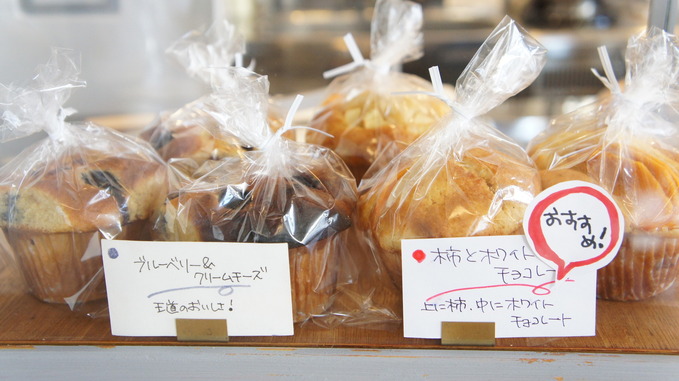 ブルーベリー&
クリームチーズ
王道のおいしさ!
柿とホワイト
チョコレー
上に柿、中にホワイト
チョコレート
おすすめ!